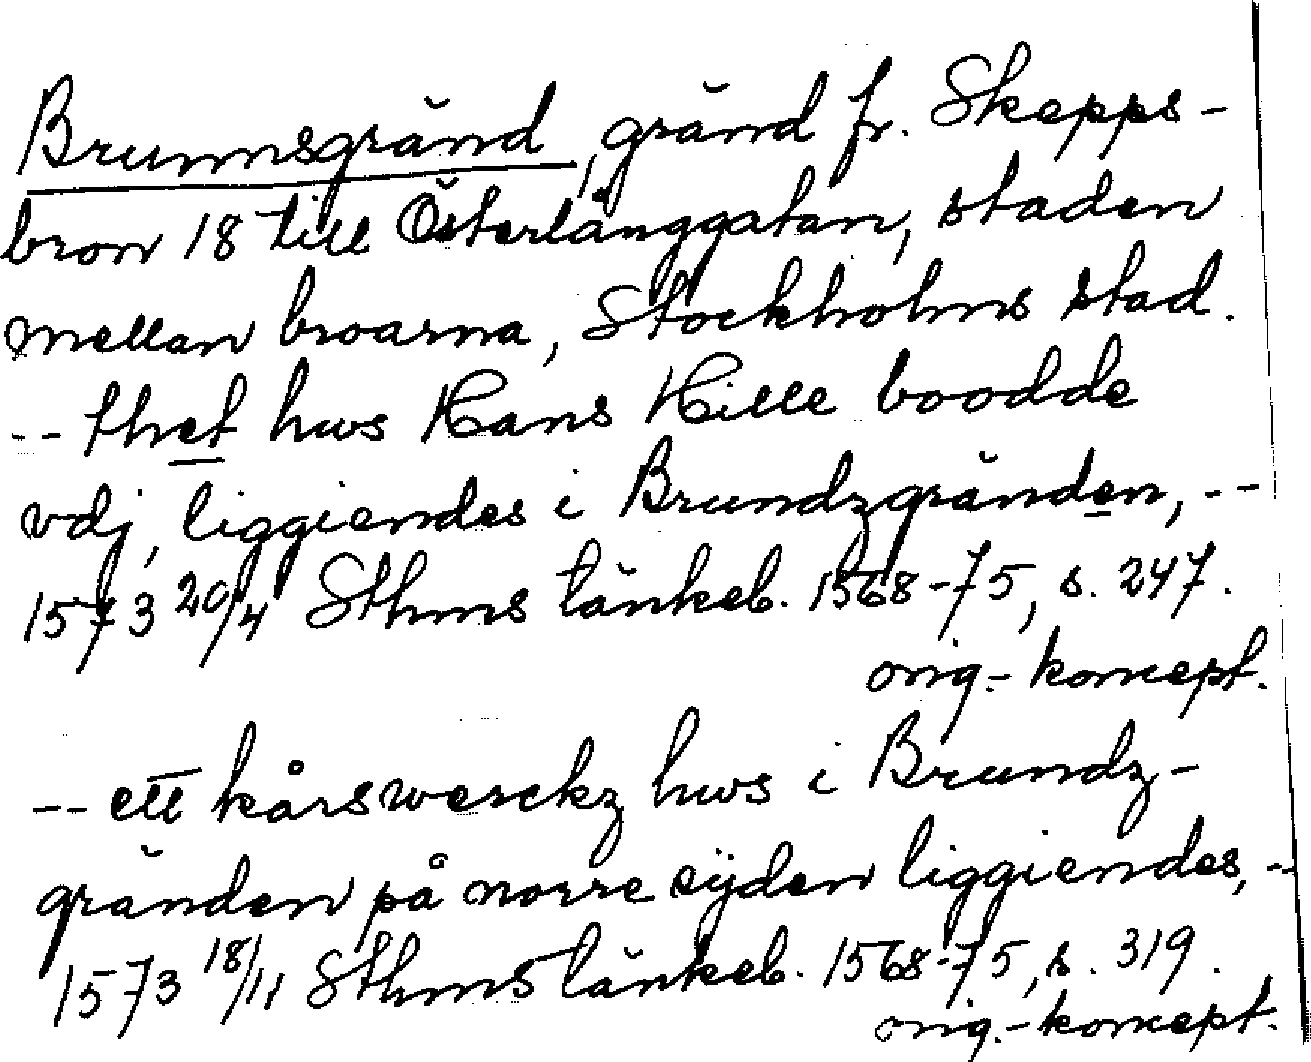 Brunnsgränd, gränd fr. Skepps-
bron 18 till Österlånggatan, staden
mellan broarna, Stockholms stad.
-- thet hws Hans Hille boodde
vdj, liggiendes i Brundzgränden, --
1573 20/4 Sthms tänkeb. 1568-75, s. 247.
orig.-koncept.
-- ett kårswerckz hws i Brundz-
gränden på norre sijden liggiendes, --
1573 18/11 Sthms tänkeb. 1568-75, s. 319.
orig.-koncept.